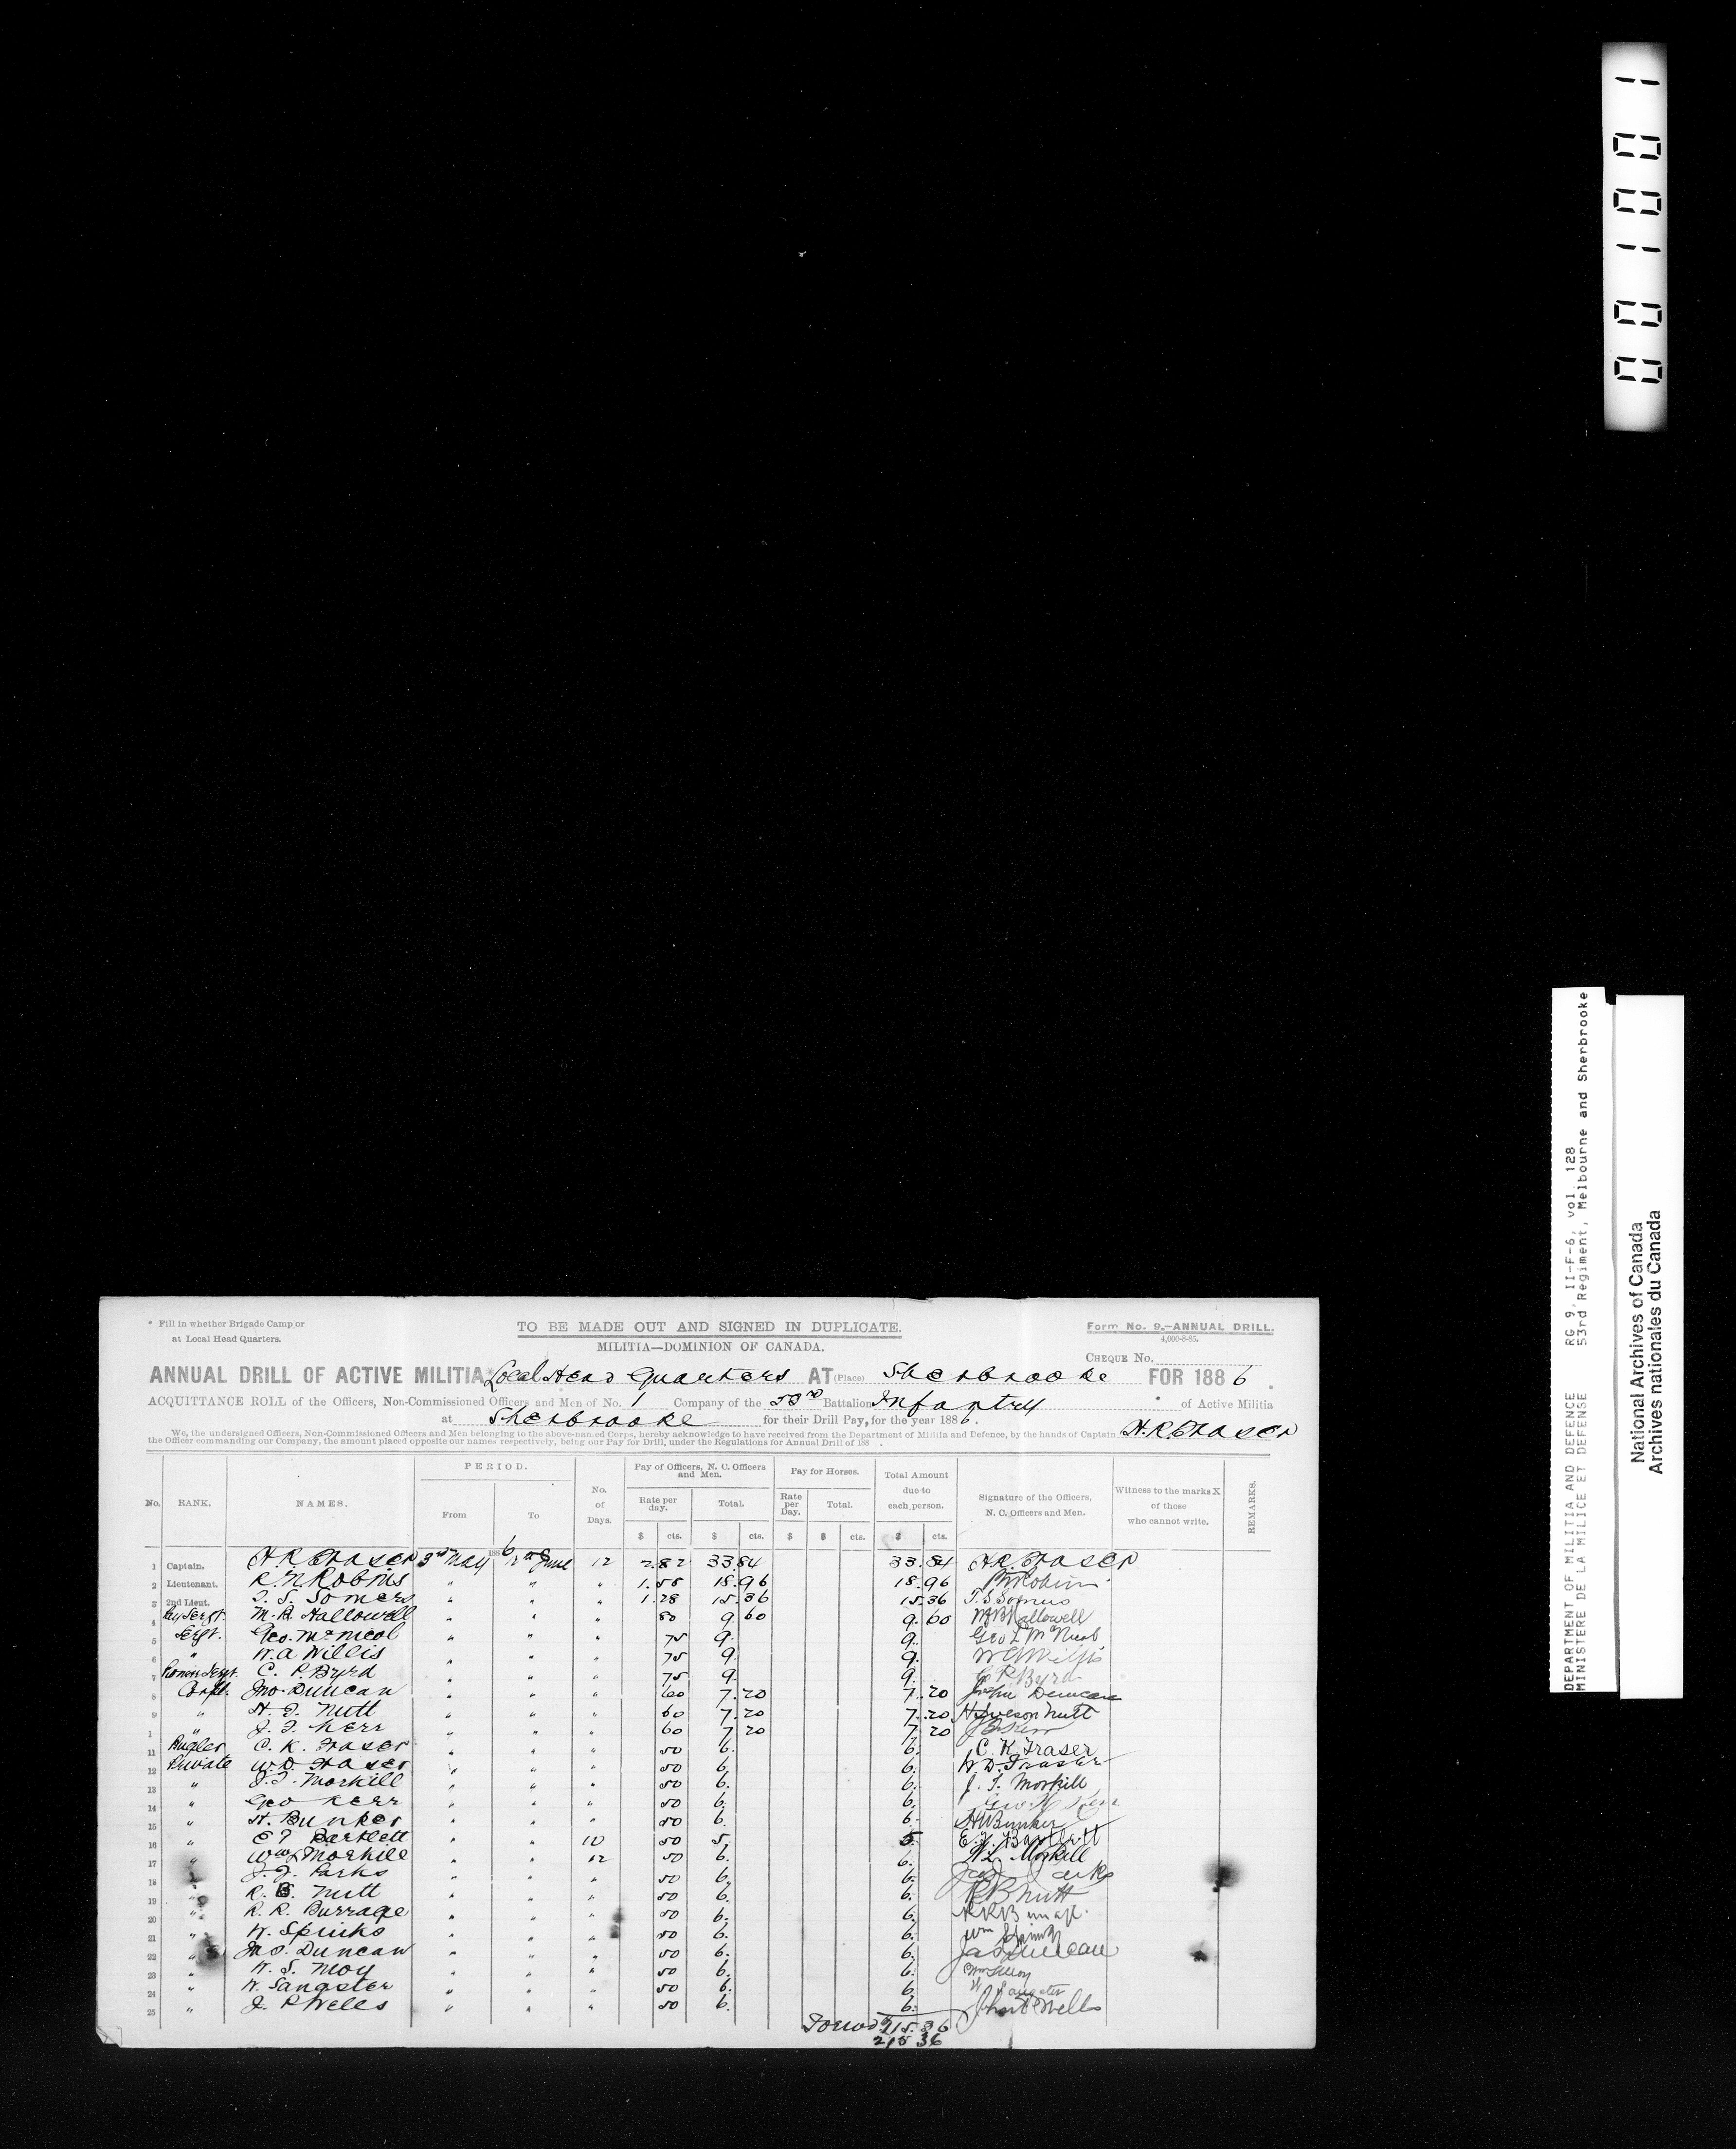 0010001
DEPARTMENT OF MILITIA AND DEFENCE RG 9, II-F-6, vol. 128
MINISTERE DE LA MILICE ET DEFENSE 53rd Regiment, Melbourne and Sherbrooke
National Archives of Canada
Archives nationales du Canada
* Fill in whether Brigade Camp or
at Local Head Quarters.
TO BE MADE OUT AND SIGNED IN DUPLICATE.
Form No. 9.—ANNUAL DRILL.
4,000-8-85.
MILITIA—DOMINION OF CANADA.
CHEQUE No.
ANNUAL DRILL OF ACTIVE MILITIA* Local Head Quarters AT (Place) Sherbrooke FOR 1886.
ACQUITTANCE ROLL of the Officers, Non-Commissioned Officers and Men of No. 1 Company of the 53rd Battalion Infantry of Active Militia
at Sherbrooke for their Drill Pay, for the year 1886.
We, the undersigned Officers, Non-Commissioned Officers and Men belonging to the above-named Corps, hereby acknowledge to have received from the Department of Militia and Defence, by the hands of Captain H.R. Fraser
the Officer commanding our Company, the amount placed opposite our names respectively, being our Pay for Drill, under the Regulations for Annual Drill of 188 .
No. RANK. NAMES. PERIOD. From To No. of Days. Pay of Officers, N. C. Officers and Men. Rate per day. Total. Pay for Horses. Rate per Day. Total. Total Amount due to each person. Signature of the Officers, N. C. Officers and Men. Witness to the marks X of those who cannot write. REMARKS.
$ cts. $ cts. $ $ cts. $ cts.
1 Captain. H.R. Fraser 3rd May 1886 12th June 12 2.82 33 84 33.84 H.R. Fraser
2 Lieutenant. R.N. Robins " " " 1.58 18.96 18.96
3 2nd Lieut. T. S. Somers " " " 1.28 15.36 15.36 T. S. Somers
4 M. B. Hallowell " " " 80 9 60 9.60 M B Hallowell
5 Sergt. Geo. McNicol " " " 75 9. 9. Geo L McNicol
6 " W. A. Willis " " " 75 9. 9. W A Willis
7 C. P. Byrd " " " 75 9. 9. C P Byrd
8 Corpl. Jno. Duncan " " " 60 7.20 7.20 John Duncan
9 " H. I. Nutt " " " 60 7.20 7.20 Nutt
1 " J. F. Kerr " " " 60 7 20 7 20 Kerr
11 Bugler C. K. Fraser " " " 50 6. 6. C. K. Fraser
12 Private W. D. Fraser " " " 50 6. 6. W. D. Fraser
13 " J. T. Morkill " " " 50 6. 6. J. T. Morkill
14 " Geo Kerr " " " 50 6. 6. Kerr
15 " H. Bunker " " " 50 6. 6. H W Bunker
16 " E T Bartlett " " 10 50 5. 5. E. T. Bartlett
17 " Wm L Morkill " " 12 50 6. 6. W L Morkill
18 " J. J. Parks " " " 50 6. 6. Parks
19 " R. B. Nutt " " " 50 6. 6. R B Nutt
20 " R. R. Burrage " " " 50 6. 6. R R Burrage
21 " W. Spinks " " " 50 6. 6. Wm Spinks
22 " Jas. Duncan " " " 50 6. 6. Jas Duncan
23 " W. S. Moy " " " 50 6. 6.
24 " W. Sangster " " " 50 6. 6 W Sangster
25 " J. P. Wells " " " 50 6. 6. John P Wells
Forwd 215.36
215 36